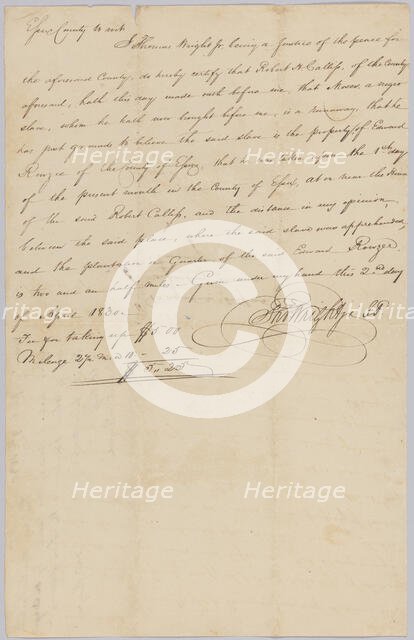 Essex County to wit
I Thomas Wright Jr being a Justice of the peace for
the aforesaid County, do hereby certify that Robert H. Callis, of the County
aforesaid, hath this day made oath before me, that Moses, a negro
slave, whom he hath now brought before me, is a runaway, that he
has just grounds to believe the said slave is the property of Edward
Rouzee of the County of Essex, that he was taken up on the 1st day
of the present month in the County of Essex, at or near the House
of the said Robert Callis, and the distance in my opinion
between the said place, where the said slave was apprehended,
and the plantation or Quarter of the said Edward Rouzee
is two and an half miles. Given under my hand this 2nd day
of April 1820.
For you taking up $5.00
Mileage 2½ m @ 10 - 25
$ 5.. 25
Tho Wright Jr
Heritage Heritage Heritage
Heritage Heritage Heritage
Heritage Heritage Heritage